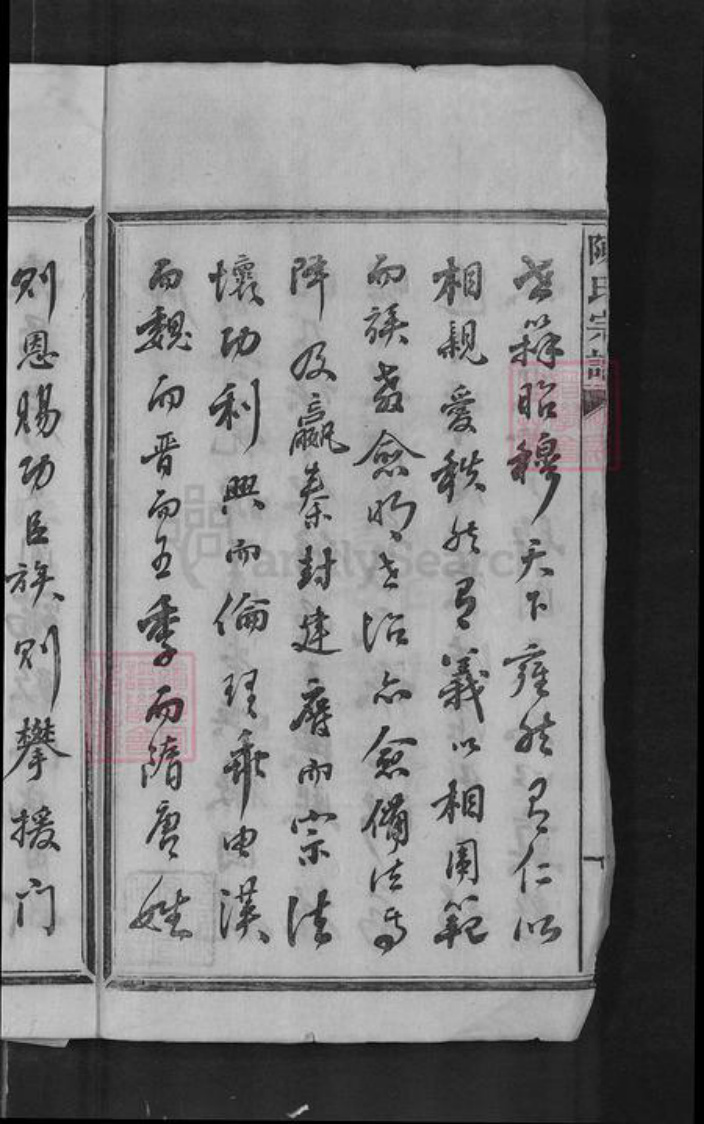 陳氏宗譜
世辯昭穆天下雍然有仁以
相親愛秩然有義以相閑範
而族教愈明世治亦愈備法與
降及嬴秦封建廢而宗法
壞功利興而倫理乖由漢
而魏而晋而五季而隋唐姓
則恩賜功臣族則攀援門
FamilySearch